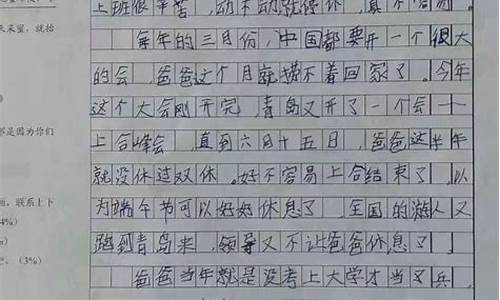 上班很辛苦,动不动就停休,真不容易。
每年的三月份,中国都要开一个很大
的会,爸爸这个月就捞不着回家了。今年
这个大会刚开完,青岛又开了一个会——
上合峰会,直到六月十五日,爸爸这半年
就没休过双休。好不容易上合结束了,以
为端午节可以好好休息了,全国的游人又
跑到青岛来,领导又不让爸爸休息了。
爸爸当年就是没考上大学才当了兵,
天来望,就抬
都是因为你们
,联系上下
4%)
(3%)